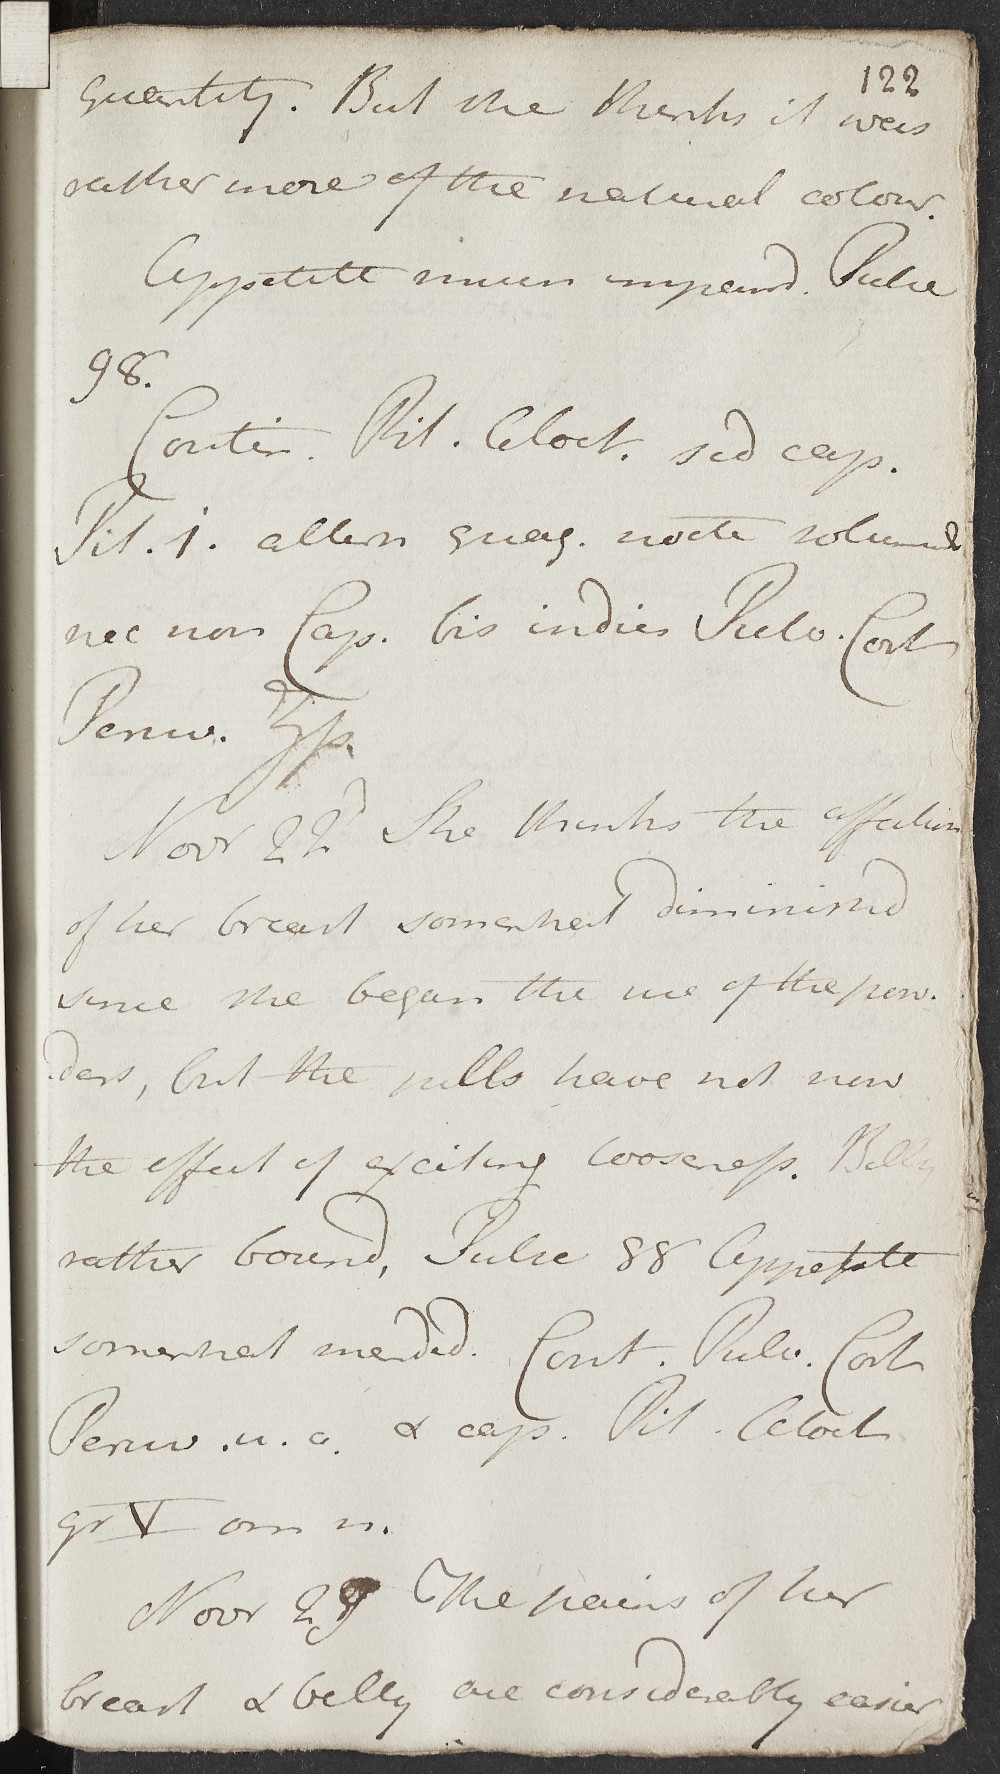 122
quantity. But she thinks it was
rather more of the natural colour.
Appetite much impair'd. Pulse
98.
Contin. Pil. Aloet. sed cap.
Pil. 1. altern quaq. nocte solumd
nec non Cap. bis indies Pulv. Cort
Peruv. ʒſs.
Novr 22d She thinks the affection
of her breast somewhat diminish'd
since she began the use of the pow-
ders, but the pills have not now
the effect of exciting looseness. Belly
rather bound, Pulse 88 Appetite
somewhat mended. Cont. Pulv. Cort
Peruv. u. a. & cap. Pil. Aloet
gr V om n.
Novr 29 The pains of her
breast & belly are considerably easier